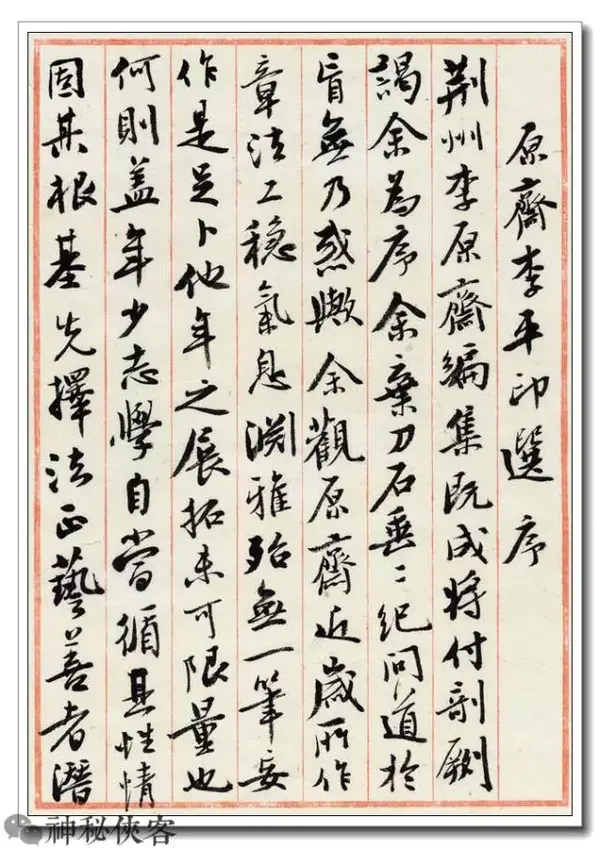 原齋李平印選序
荆州李原齋編集既成將付剞劂
謁余為序余棄刀石垂二紀問道於
盲無乃惑歟余觀原齋近歲所作
章法工穩氣息淵雅殆無一筆妄
作是足卜他年之展拓未可限量也
何則蓋年少志學自當循其性情
固其根基先擇法正藝善者潛
神秘俠客